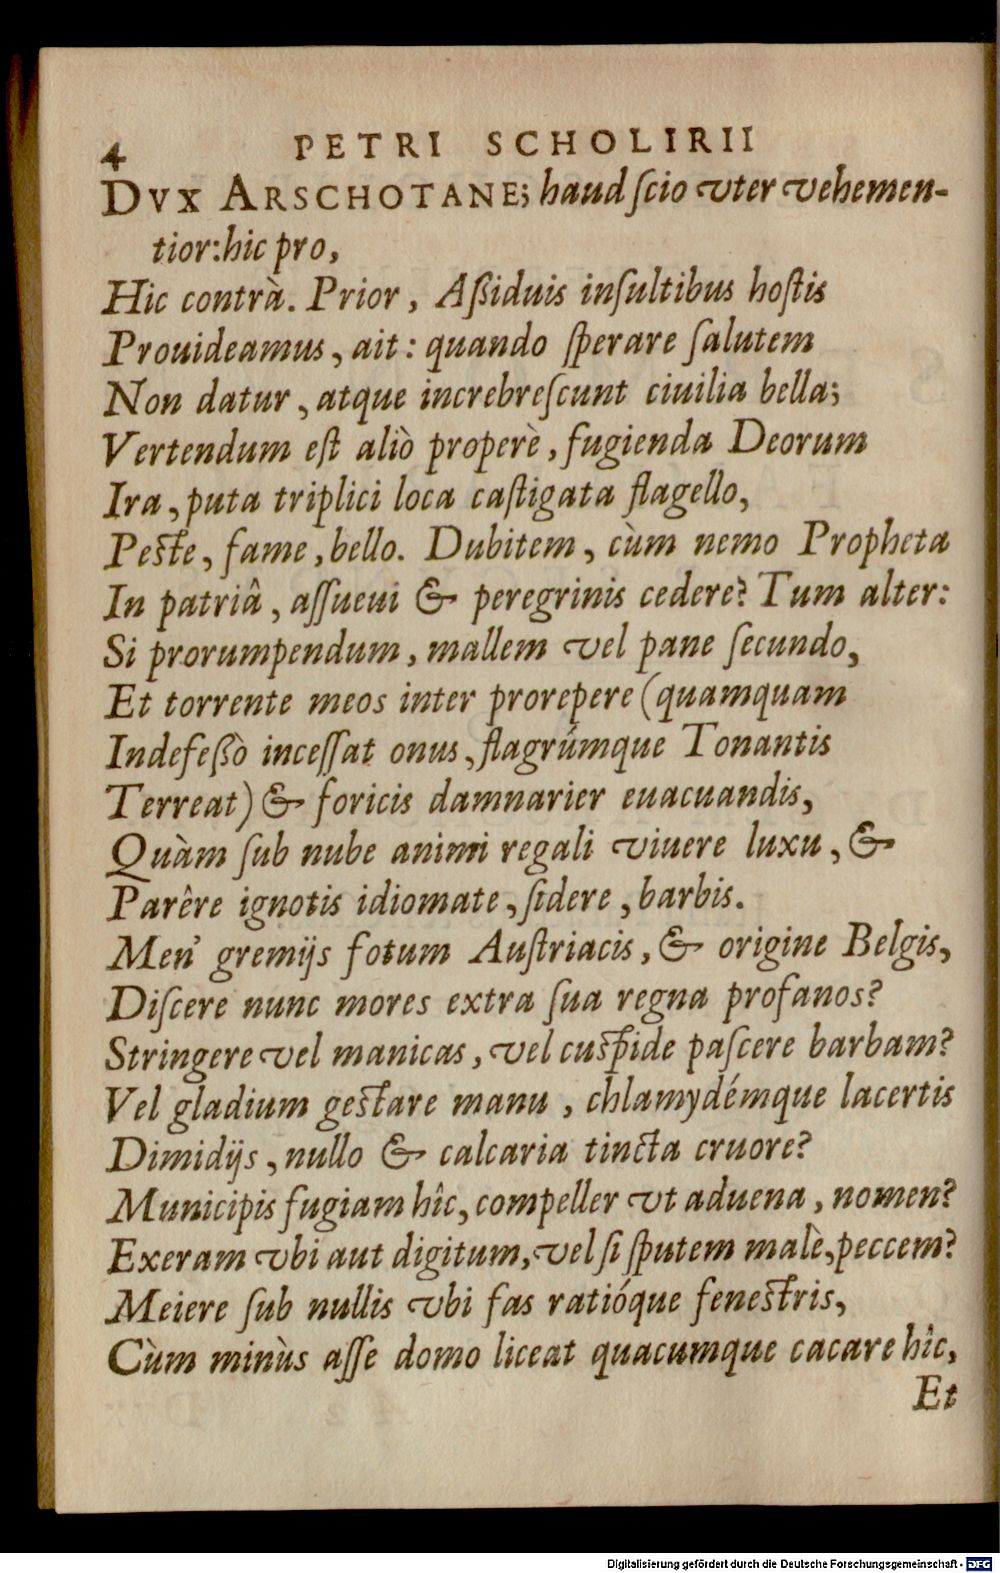 4 PETRI SCHOLIRII
DVX ARSCHOTANE; haud ſcio vter vehemen-
tior: hic pro,
Hic contrà. Prior, Aßiduis inſultibus hoſtis
Prouideamus, ait: quando ſperare ſalutem
Non datur, atque increbreſcunt ciuilia bella;
Vertendum eſt aliò properè, fugienda Deorum
Ira, puta triplici loca caſtigata flagello,
Peſte, fame, bello. Dubitem, cùm nemo Propheta
In patriâ, aſſueui & peregrinis cedere? Tum alter:
Si prorumpendum, mallem vel pane ſecundo,
Et torrente meos inter prorepere (quamquam
Indefeßò inceſſat onus, flagrúmque Tonantis
Terreat) & foricis damnarier euacuandis,
Quàm ſub nube animi regali viuere luxu, &
Parêre ignotis idiomate, ſidere, barbis.
Men' gremijs fotum Auſtriacis, & origine Belgis,
Diſcere nunc mores extra ſua regna profanos?
Stringere vel manicas, vel cuſpide paſcere barbam?
Vel gladium geſtare manu, chlamydémque lacertis
Dimidijs, nullo & calcaria tincta cruore?
Municipis fugiam hîc, compeller vt aduena, nomen?
Exeram vbi aut digitum, vel ſi ſputem malè, peccem?
Meiere ſub nullis vbi fas ratióque feneſtris,
Cùm minùs aſſe domo liceat quacumque cacare hîc,
Et
Digitalisierung gefördert durch die Deutsche Forschungsgemeinschaft - DFG